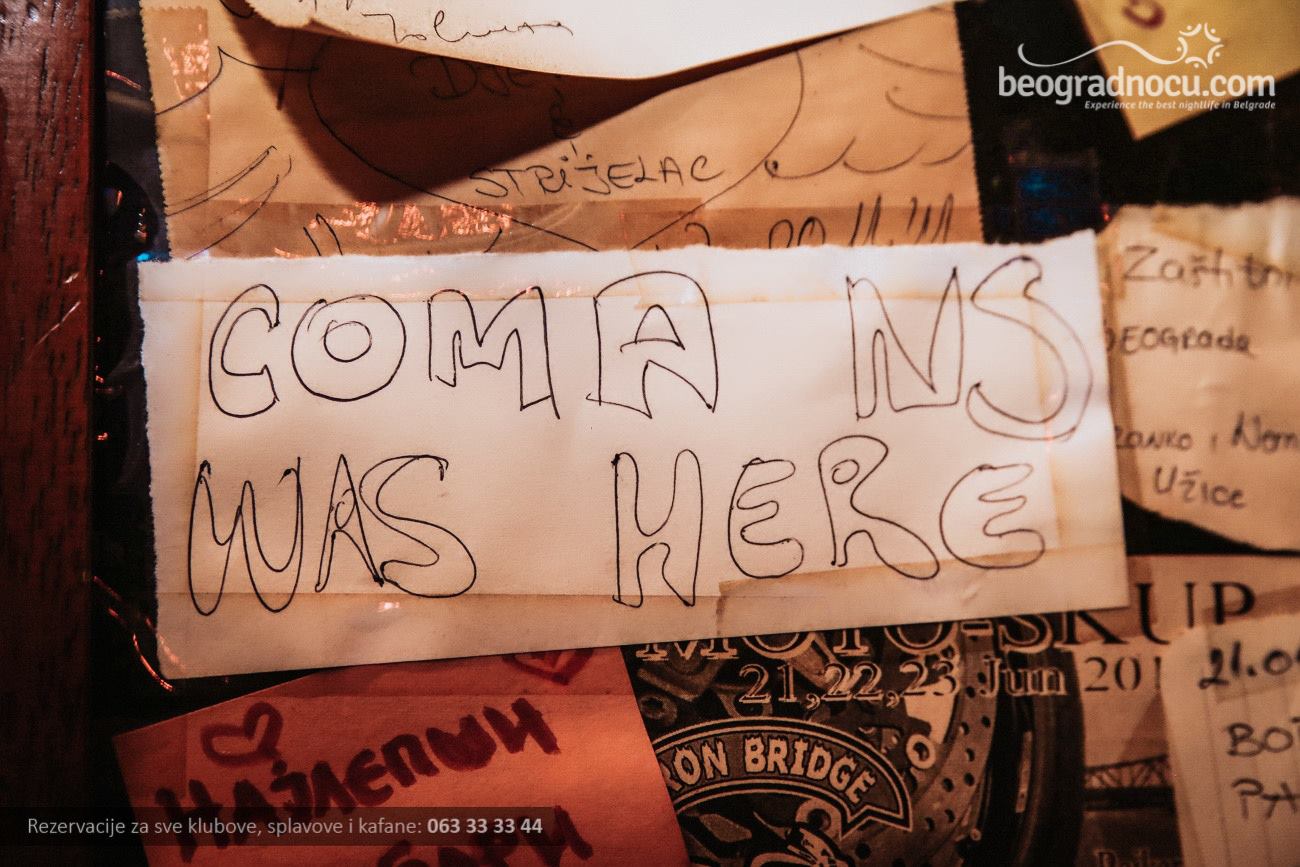 beogradnocu.com
Experience the best nightlife in Belgrade
STRIJELAC
COMA NS
WAS HERE
Zaštitni
BEOGRADA
Užice
MOTO-SKUP
21,22,23. Jun 201
IRON BRIDGE
21.0
НАЈЛЕПШИ
Rezervacije za sve klubove, splavove i kafane: 063 33 33 44